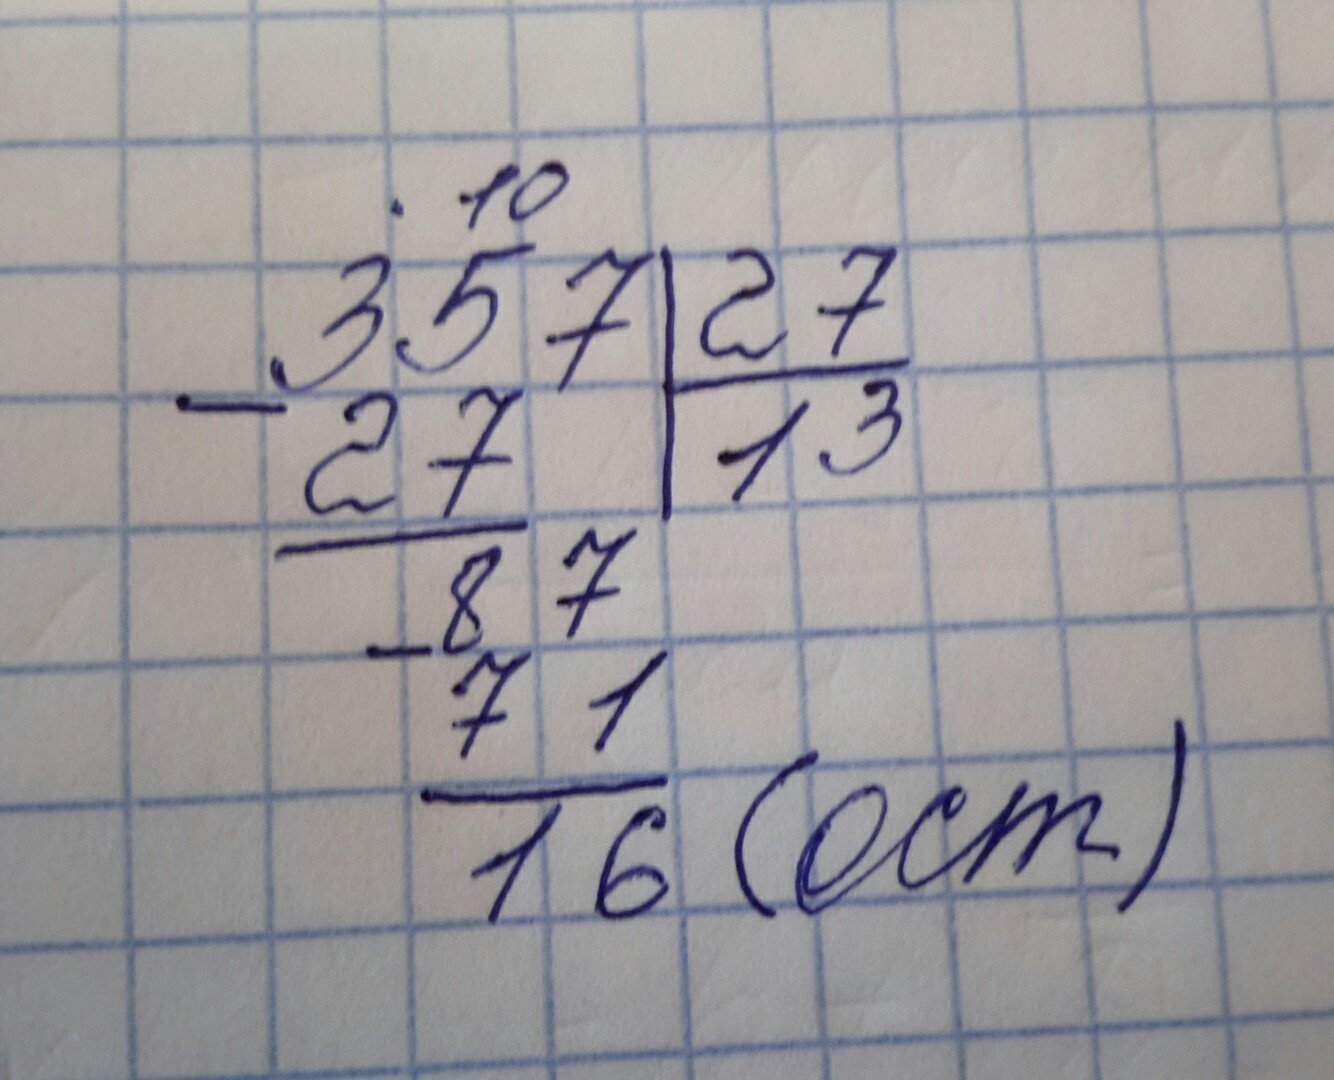 . 10
357 | 27
- 27 | 13
87
- 71
16 (ост)